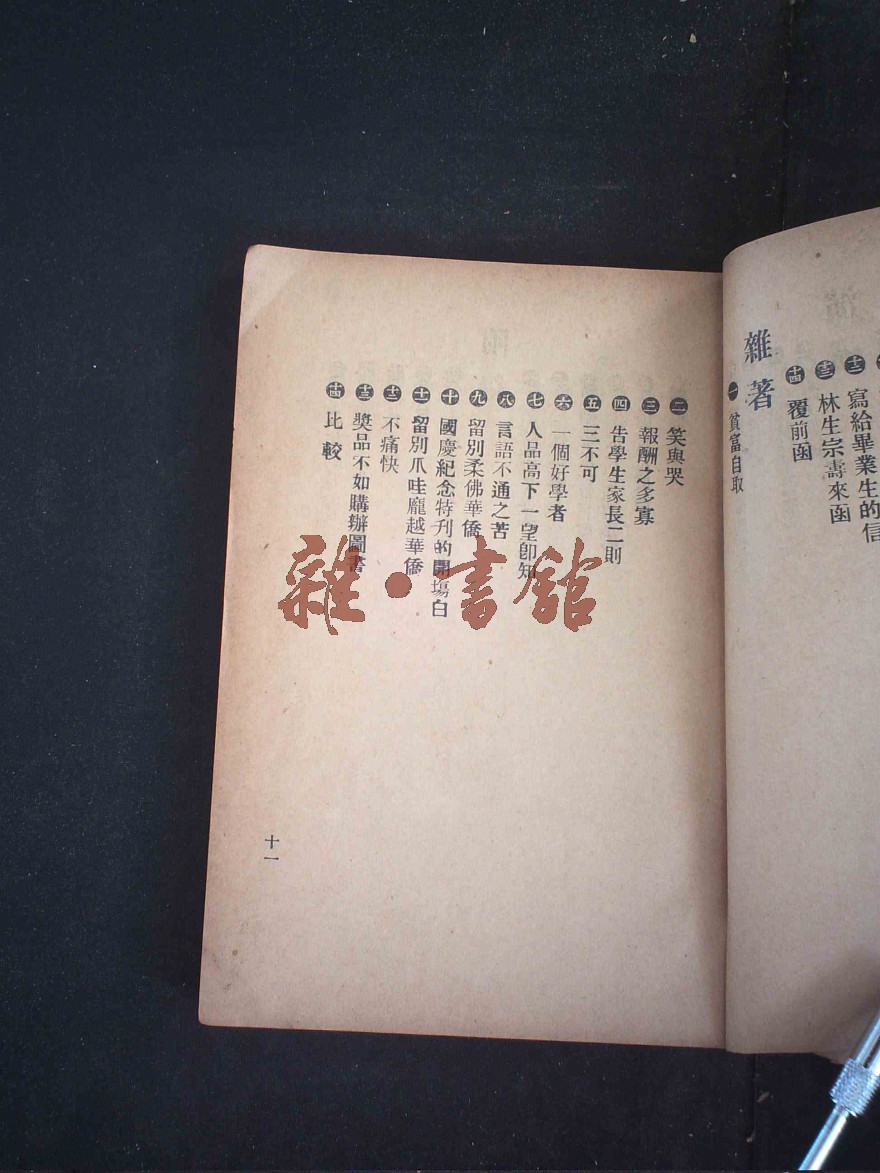 ㊉㊁ 寫給畢業生的信
㊉㊂ 林生宗壽來函
㊉㊃ 覆前函
雜著
㊀ 貧富自取
㊁ 笑與哭
㊂ 報酬之多寡
㊃ 告學生家長二則
㊄ 三不可
㊅ 一個好學者
㊆ 人品高下一望卽知
㊇ 言語不通之苦
㊈ 留別柔佛華僑
㊉ 國慶紀念特刋的開塲白
㊉㊀ 留別爪哇龐越華僑
㊉㊁ 不痛快
㊉㊂ 獎品不如購辦圖書
㊉㊃ 比較
十一
雜·書館